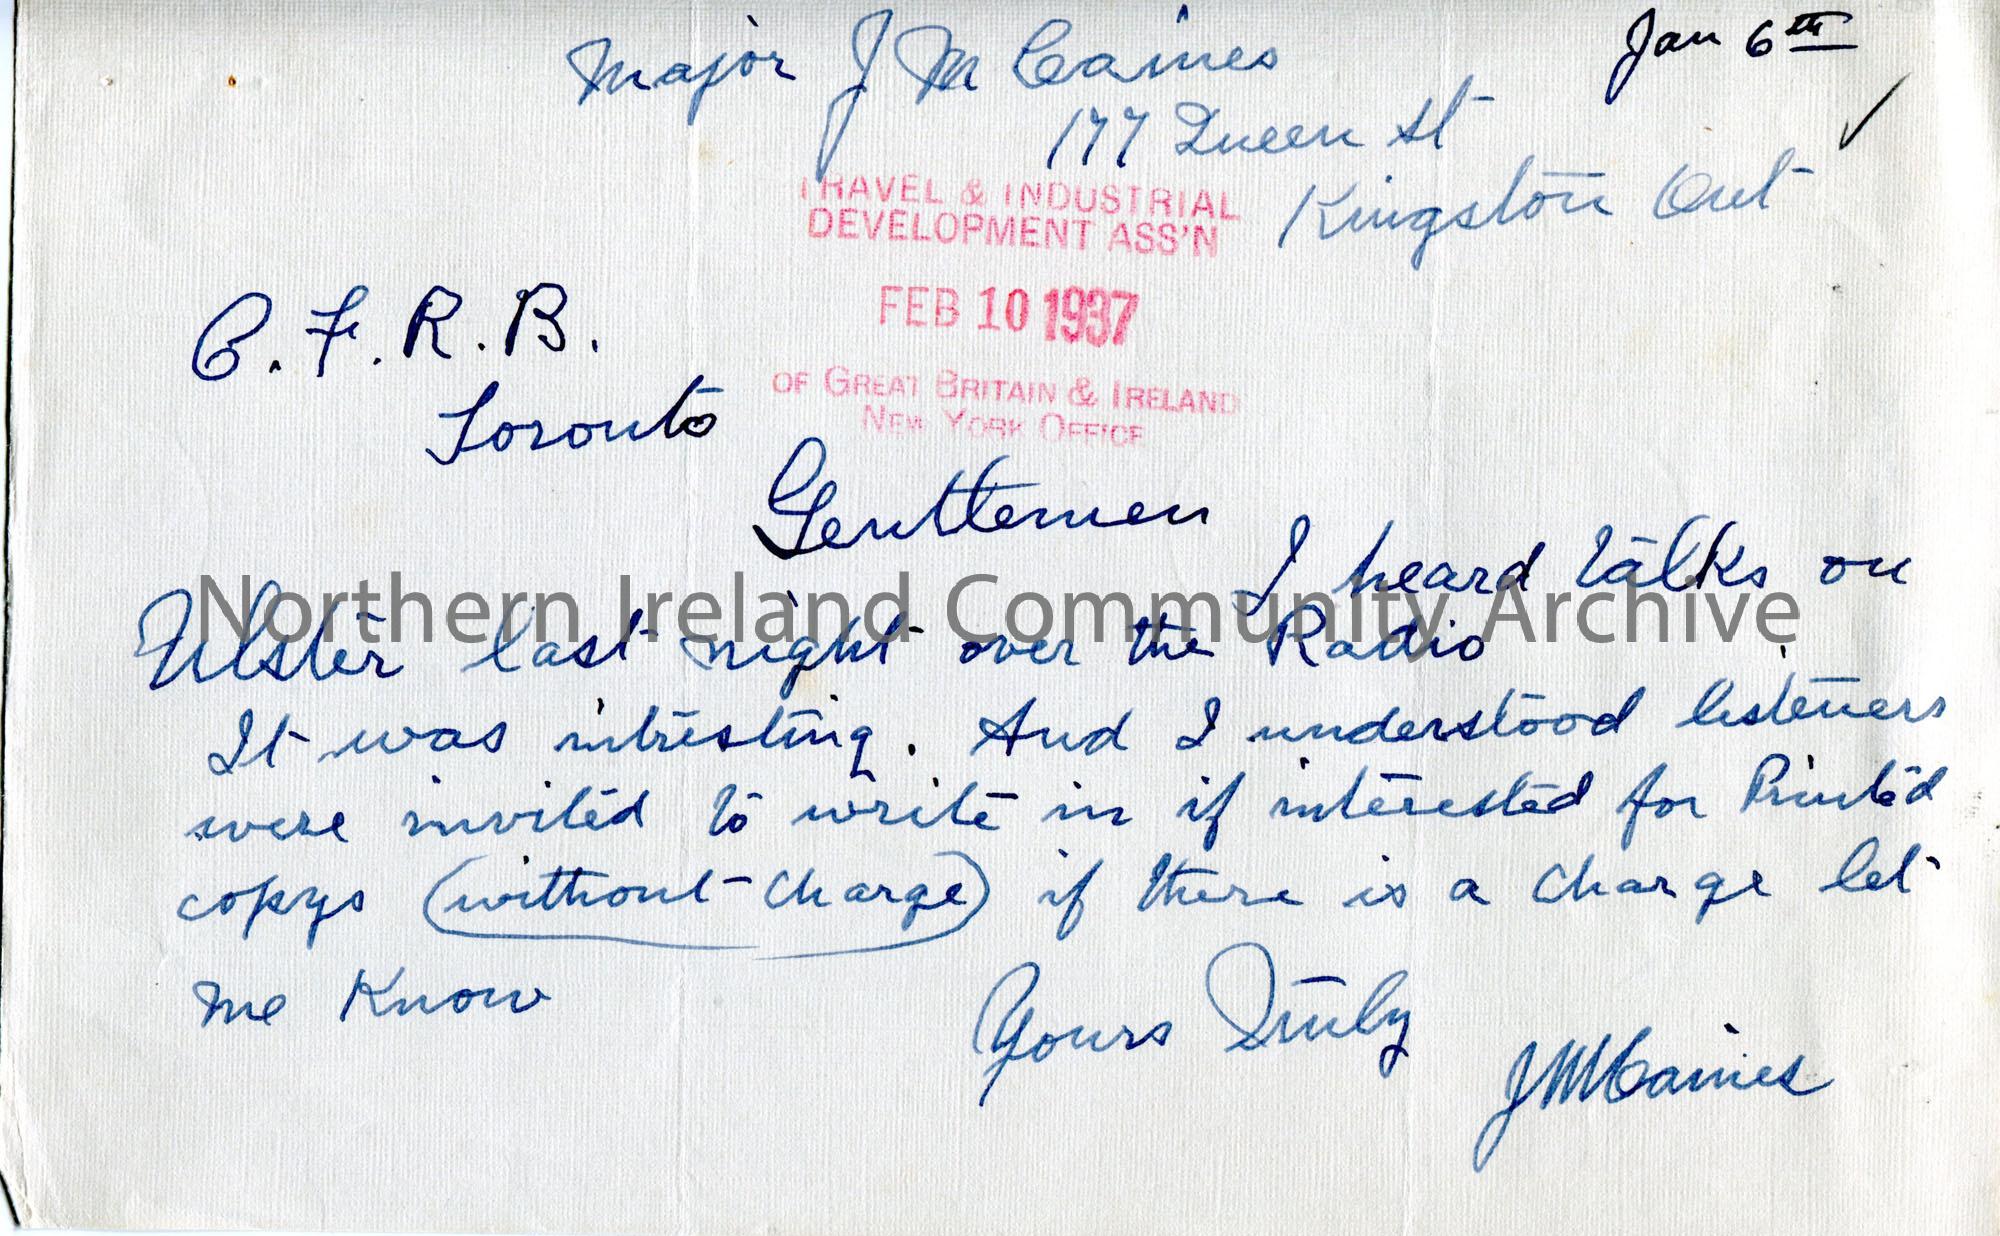 Major J M Caines
Jan 6th
177 Queen St
Kingston Ont
TRAVEL & INDUSTRIAL
DEVELOPMENT ASS'N
FEB 10 1937
OF GREAT BRITAIN & IRELAND
NEW YORK OFFICE
C. F. R. B.
Toronto
Gentlemen
I heard talks on
Northern Ireland Community Archive
Ulster last night over the Radio
It was intresting. And I understood listeners
were invited to write in if interested for Printed
copys (without charge) if there is a charge let
me Know
Yours Truly
JM Caines